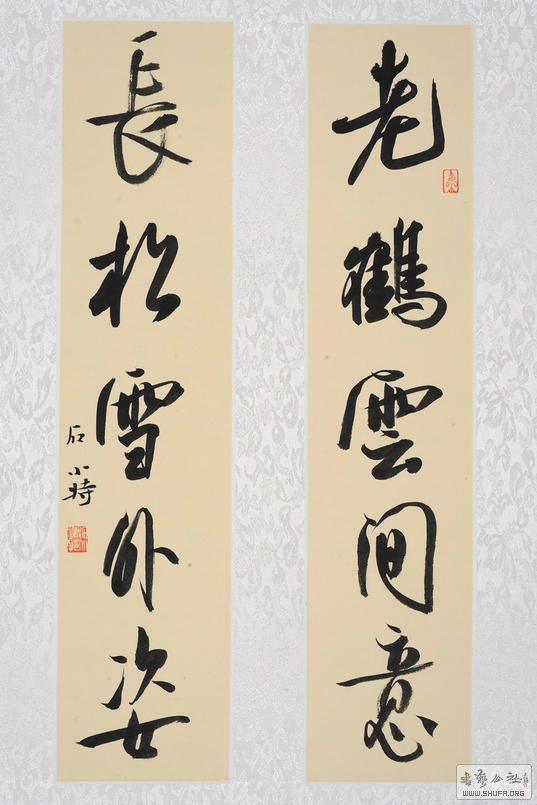 老鶴雲間意
長松雪外姿
石小特
書藝公社
WWW.SHUFA.ORG